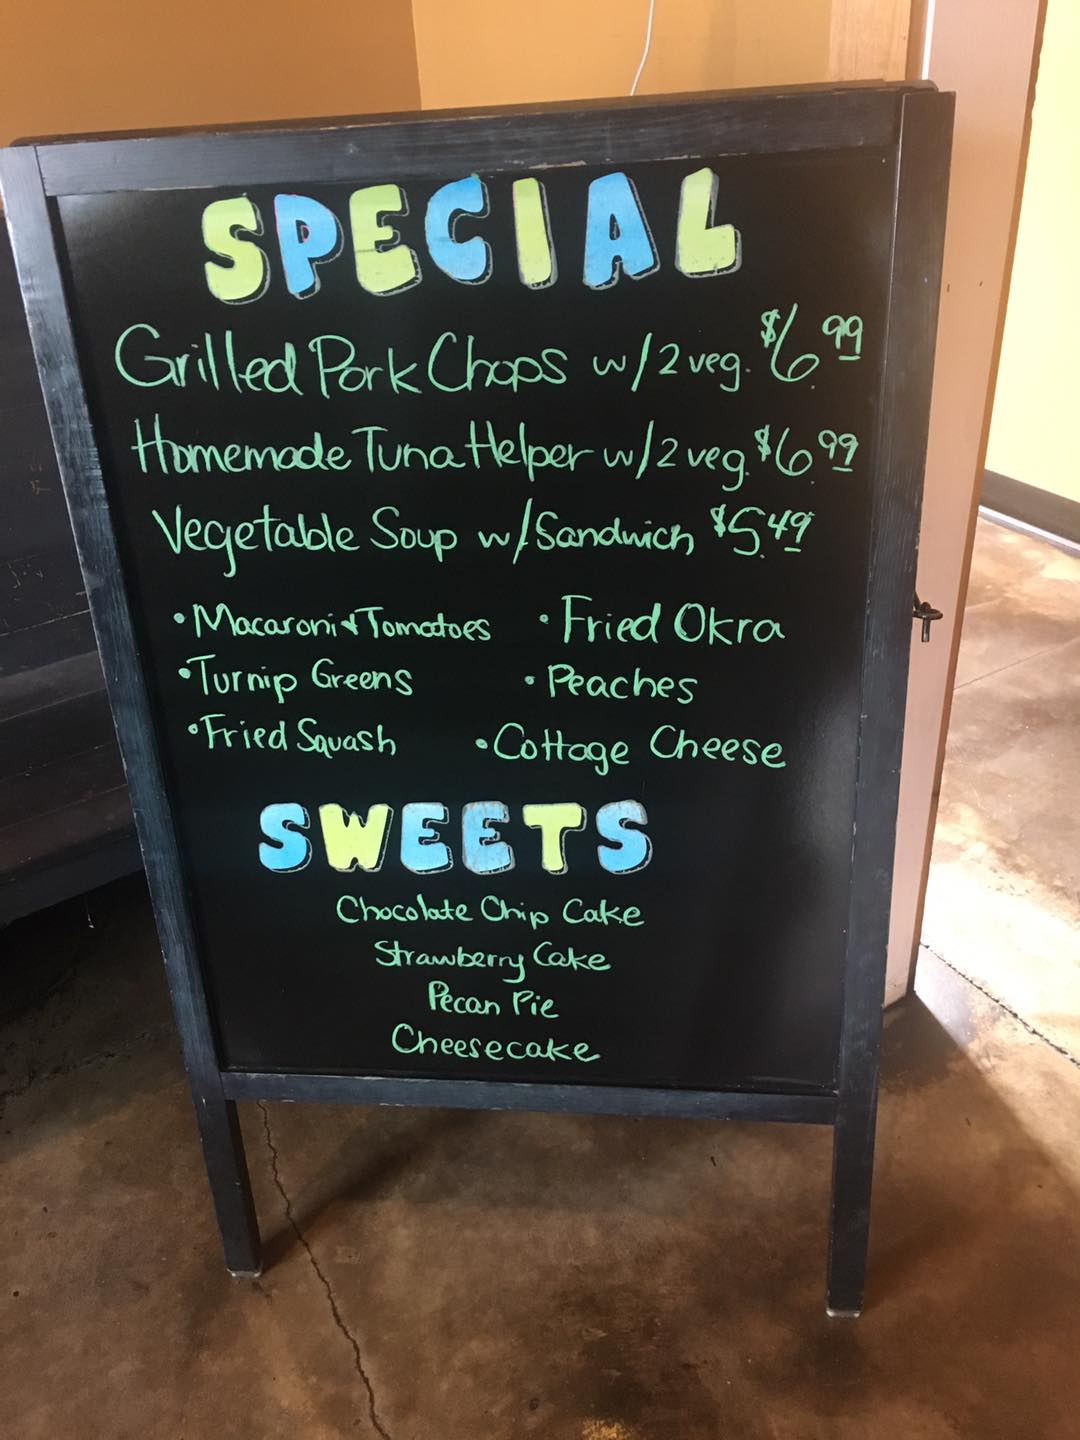 SPECIAL
Grilled Pork Chops w/2 veg. $6.99
Homemade Tuna Helper w/2 veg. $6.99
Vegetable Soup w/Sandwich $5.49
•Macaroni & Tomatoes •Fried Okra
•Turnip Greens •Peaches
•Fried Squash •Cottage Cheese
SWEETS
Chocolate Chip Cake
Strawberry Cake
Pecan Pie
Cheesecake